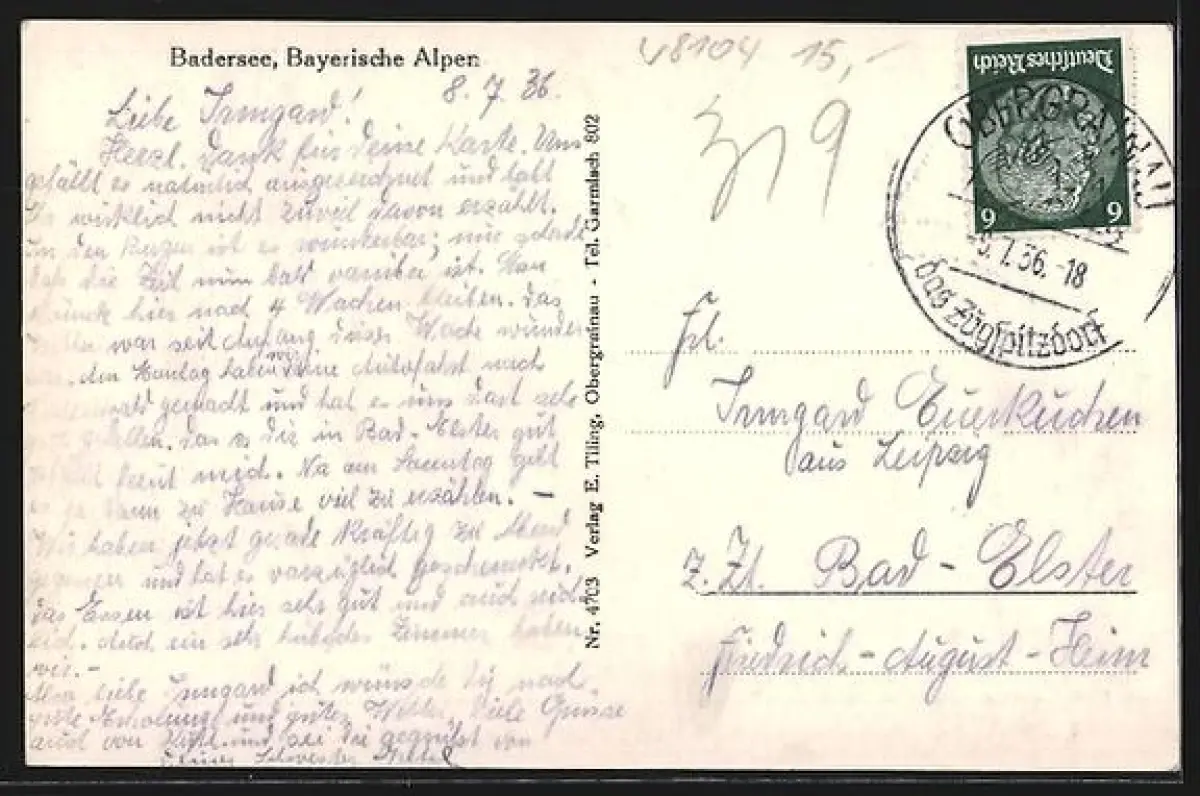 Badersee, Bayerische Alpen
8. 7. 36.
Liebe Irmgard!
Herzl. Dank für Deine Karte. Uns
gefällt es natürlich ausgezeichnet und habt
Ihr wirklich nicht zuviel davon erzählt.
In den Bergen ist es wunderbar; nur schade
daß die Zeit nun bald vorüber ist. Man
müsste hier noch 4 Wochen bleiben. Das
war seit Anfang dieser Woche wunder-
bar. Am Montag haben wir eine Autofahrt nach
gemacht und hat es uns dort sehr
gut gefallen. Das es Dir in Bad-Elster gut
gefällt freut mich. Na am Sonntag gibt
es ja dann zu Hause viel zu erzählen. –
Wir haben jetzt gerade kräftig zu Abend
gegessen und hat es vorzüglich geschmeckt.
Das Essen ist hier sehr gut und auch reich-
lich. Auch ein sehr hübsches Zimmer haben
wir. –
Also liebe Irmgard ich wünsche Dir noch
gute Erholung und gutes Wetter. Viele Grüsse
auch von und sei Du gegrüßt von
Deiner Schwester
Nr. 4703 Verlag E. Tiling, Obergrainau - Tel. Garmisch 802
v8104 15,-
319
Deutsches Reich
6 6
OBERGRAINAU
7.36.-18
Das Zugspitzdorf
Frl.
Irmgard Eierkuchen
aus Leipzig
z. Zt. Bad-Elster
Friedrich-August-Heim